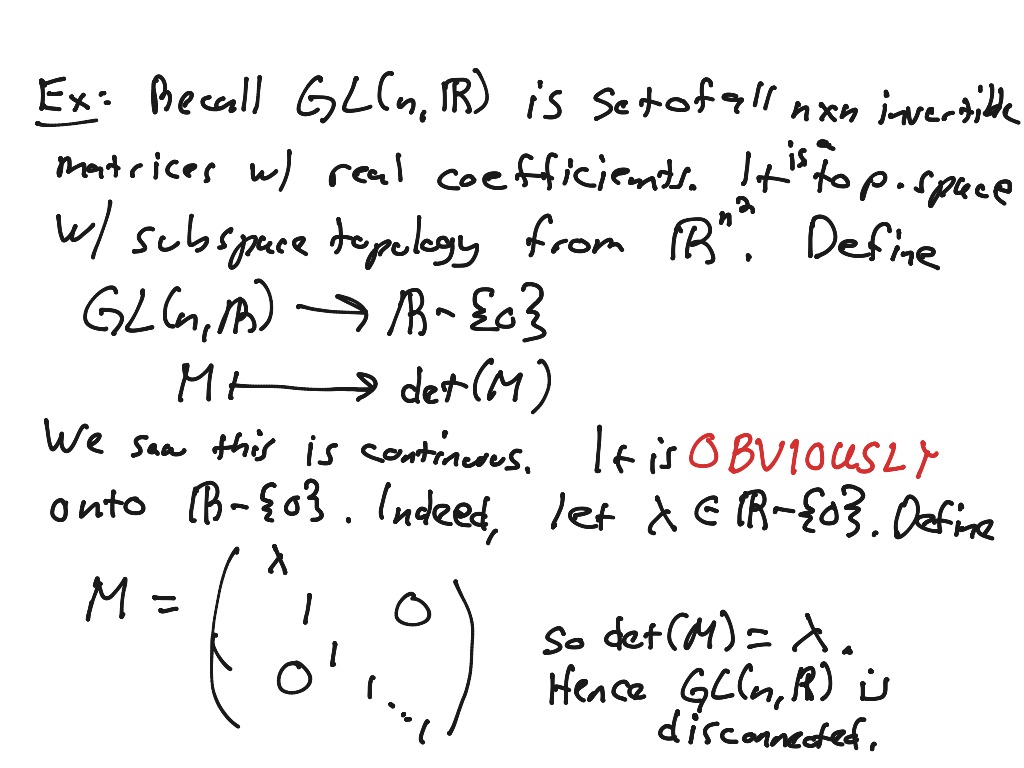 Ex: Recall GL(n, ℝ) is set of all nxn invertible
matrices w/ real coefficients. It is a top. space
w/ subspace topology from ℝ^n². Define
GL(n, ℝ) ⟶ ℝ - {0}
M ⟼ det(M)
We saw this is continuous. It is OBVIOUSLY
onto ℝ - {0}. Indeed, let λ ∈ ℝ - {0}. Define
M = ( λ 1 1 1 ⋱ 1 0 0 )
so det(M) = λ.
Hence GL(n, ℝ) is
disconnected.